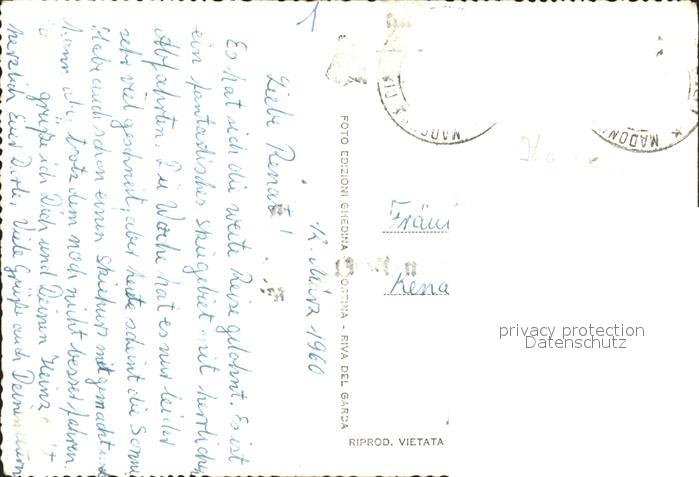 12. März 1960
Liebe Renate!
Es hat sich die weite Reise gelohnt. Es ist
ein fantastisches Skigebiet mit herrlichen
Abfahrten. Die Woche hat es nur leider
sehr viel geschneit, aber heute scheint die Sonne
Habe auch schon einen Skikurs mitgemacht und
kann die trotzdem noch nicht besser fahren.
grüße ich Dich und Deinen Heinz
herzlich Eure Dorle. Viele Grüße auch Deinen
FOTO EDIZIONI GHEDINA - CORTINA - RIVA DEL GARDA
RIPROD. VIETATA
MADON
MADON
Fräul
Rena
privacy protection
Datenschutz